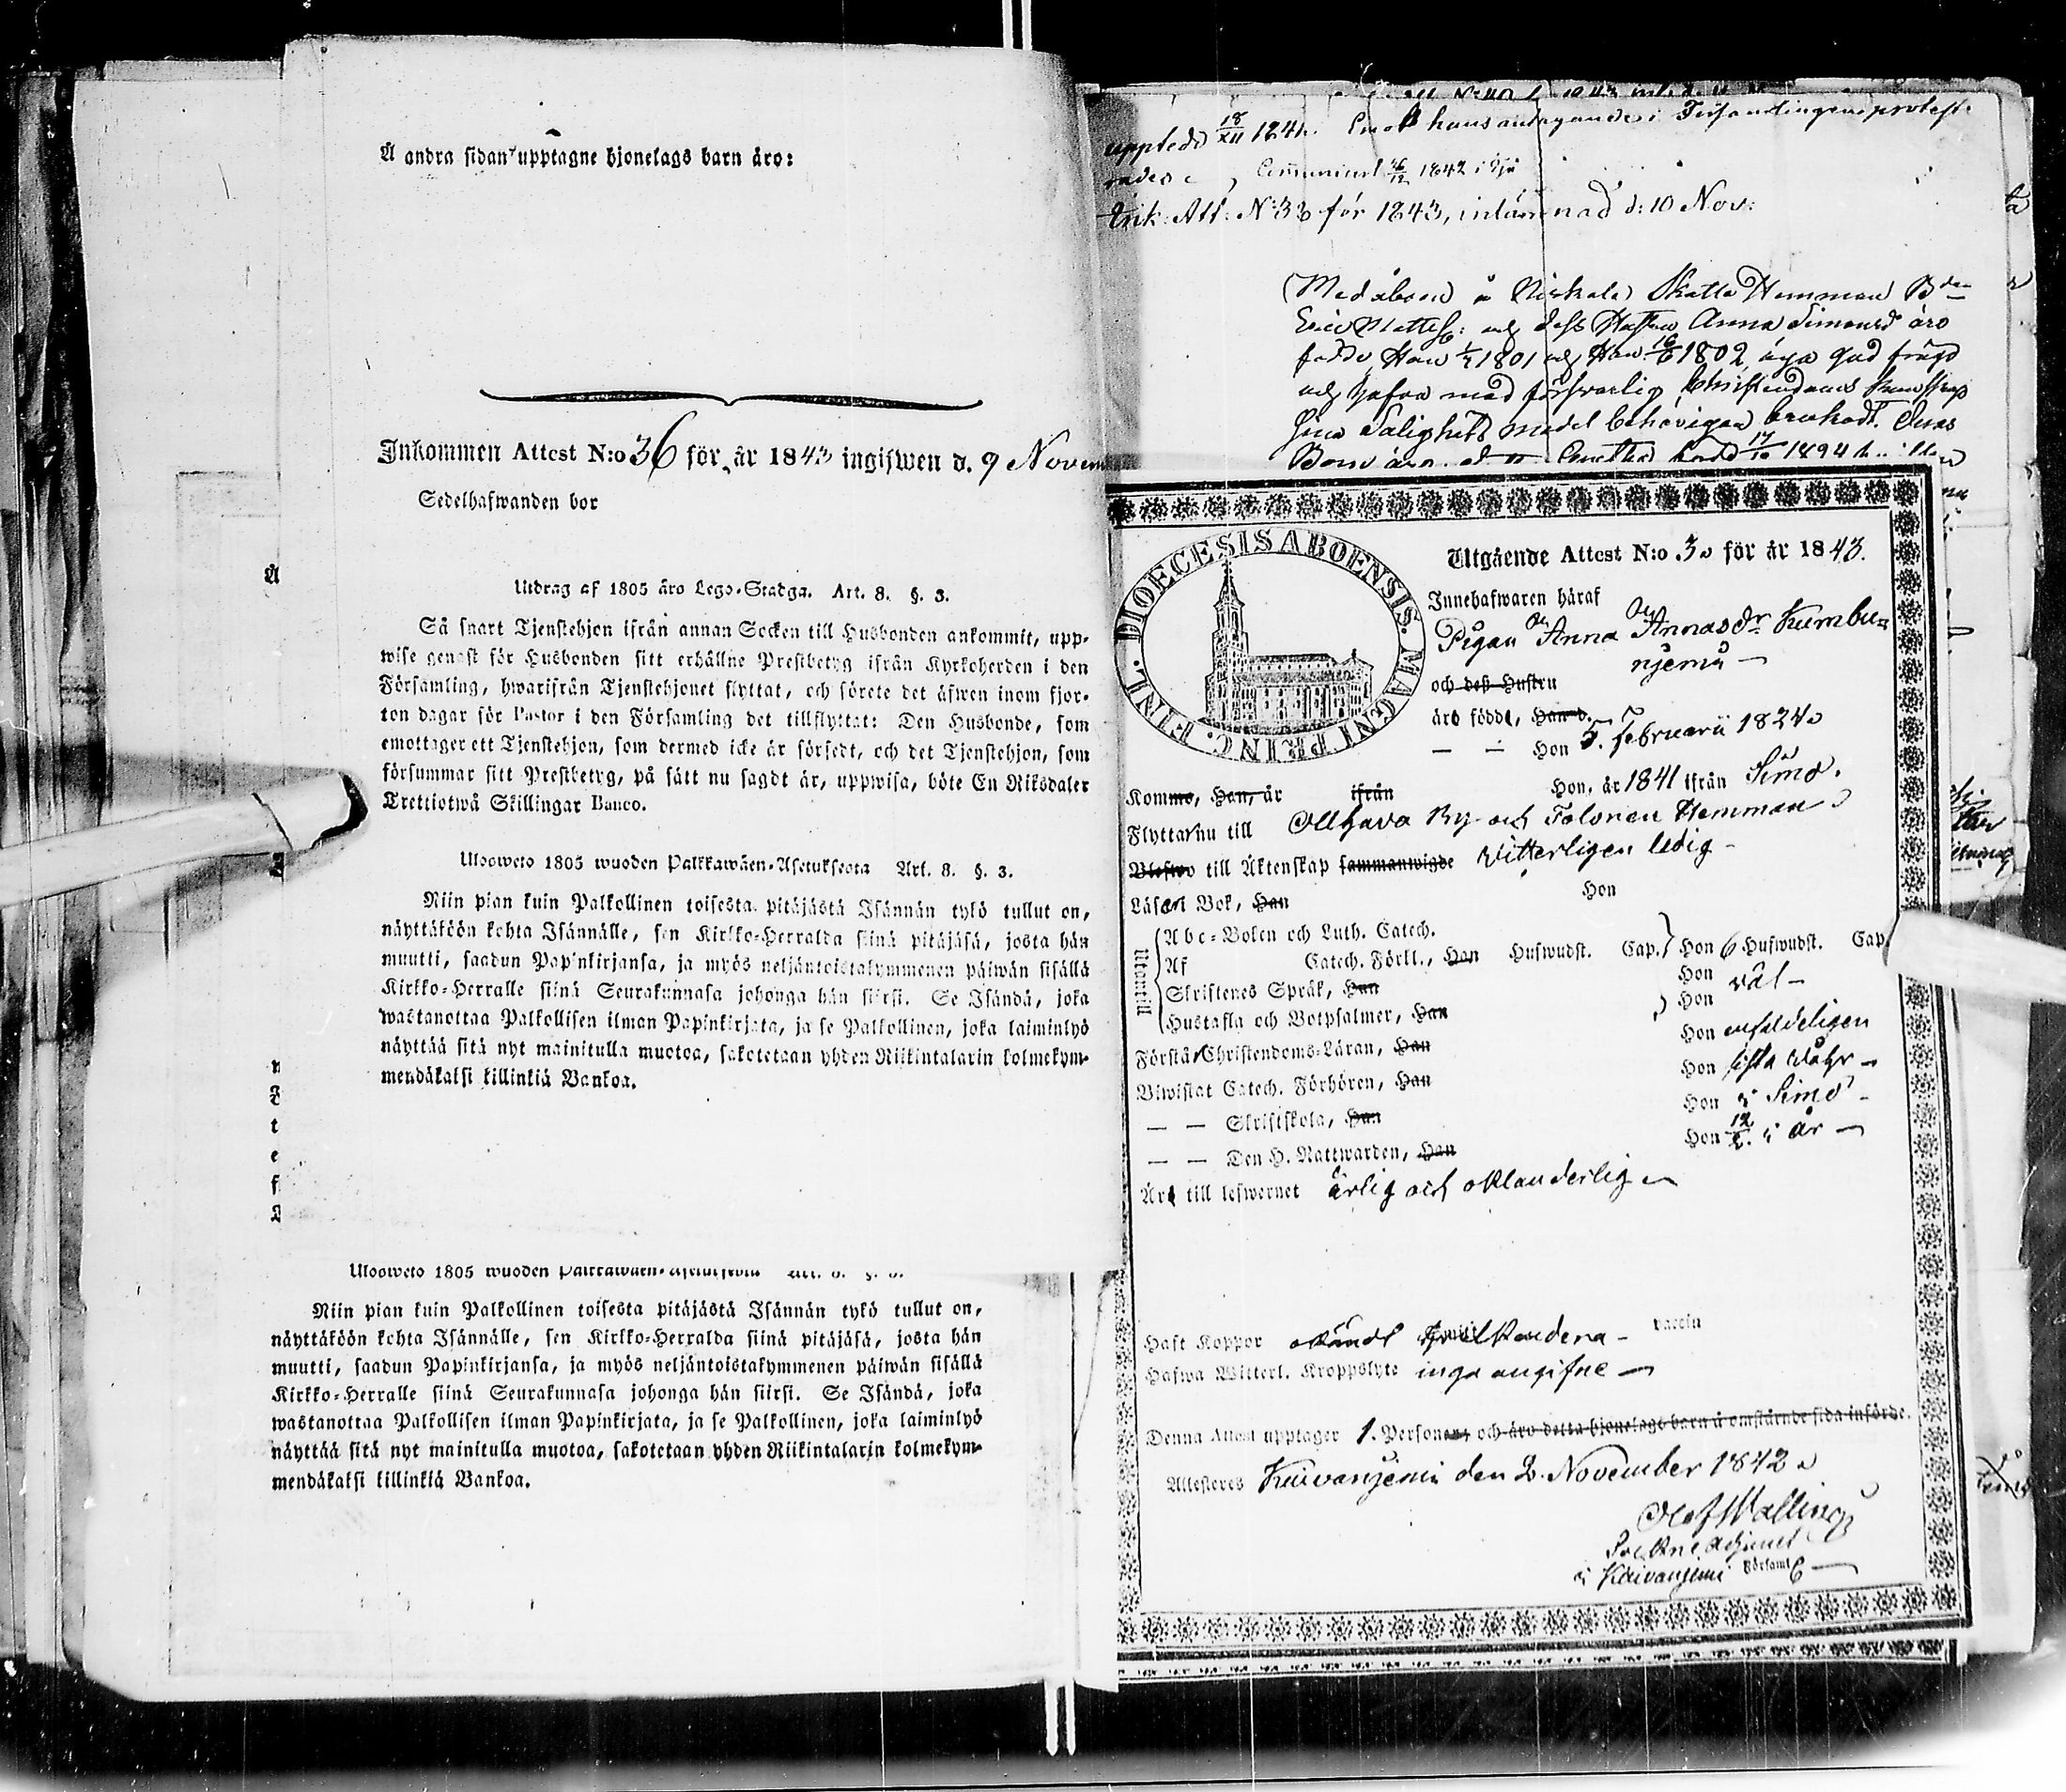 Å andra sidan upptagne hjonelags barn äro:
Inkommen Attest N:o 36 för år 1843 ingifwen d. 9 Novem
Sedelhafwanden bor
Utdrag af 1805 års Lego-Stadga. Art. 8. §. 3.
Så snart Tjenstehjon ifrån annan Socken till Husbonden ankommit, upp-
wise genast för Husbonden sitt erhållne Prestbetyg ifrån Kyrkoherden i den
Församling, hwarifrån Tjenstehjonet flyttat, och förete det äfwen inom fjor-
ton dagar för Pastor i den Församling det tillflyttat: Den Husbonde, som
emottager ett Tjenstehjon, som dermed icke är försedt, och det Tjenstehjon, som
försummar sitt Prestbetyg, på sätt nu sagdt är, uppwisa, böte En Riksdaler
Trettiotwå Skillingar Banco.
Ulosweto 1805 wuoden Palkkawäen-Asetuksesta Art. 8. §. 3.
Niin pian kuin Palkollinen toisesta pitäjästä Isännän tykö tullut on,
näyttäköön kohta Isännälle, sen Kirkko-Herralda siinä pitäjäsä, josta hän
muutti, saadun Papinkirjansa, ja myös neljäntoistakymmenen päiwän sisällä
Kirkko-Herralle siinä Seurakunnasa johonga hän siirsi. Se Isändä, joka
wastanottaa Palkollisen ilman Papinkirjata, ja se Palkollinen, joka laiminlyö
näyttää sitä nyt mainitulla muotoa, sakotetaan yhden Riikintalarin kolmekym-
mendäkaksi killinkiä Bankoa.
Ulosweto 1805 wuoden Palkkawäen-Asetuksesta Art. 8. §. 3.
Niin pian kuin Palkollinen toisesta pitäjästä Isännän tykö tullut on,
näyttäköön kohta Isännälle, sen Kirkko-Herralda siinä pitäjäsä, josta hän
muutti, saadun Papinkirjansa, ja myös neljäntoistakymmenen päiwän sisällä
Kirkko-Herralle siinä Seurakunnasa johonga hän siirsi. Se Isändä, joka
wastanottaa Palkollisen ilman Papinkirjata, ja se Palkollinen, joka laiminlyö
näyttää sitä nyt mainitulla muotoa, sakotetaan yhden Riikintalarin kolmekym-
mendäkaksi killinkiä Bankoa.
upptedd 18/XII 1841. Emot hans antagande i Församlingen protest
rades Communicerat 26/12 1842 i
Erik: Att: N:33 för 1843, inlämnad d: 10 Nov:
(Medåboend å Niskala Skatte Hemman Bden
Eric Mattess: och dess Hustru Anna Simonsd äro
födde, Han 1801 och Hon 1802, äga god frägd
och hafva med försvarlig Christendoms kunskap
sina Salighets medel behörigen brukadt. Deras
Barn äro
DIOECESIS ABOENSIS. MAGNI PRINC. FINL.
Utgående Attest N:o 30 för år 1843.
Innehafwaren häraf
Pigan Anna Annasdr Kumbu=
njemi —
och dess Hustru
äro födde, Han d.
— — Hon 5. Februarii 1824
Komme, Han, år ifrån Hon, år 1841 ifrån Simo.
Flyttar nu till Ollgava By och Tolonen Hemman
Blefwo till Äktenskap sammanwigde Vitterligen ledig —
Läser i Bok, Han Hon
Utantill
Abc-Boken och Luth. Catech.
Af Catech. Förkl., Han Hufwudst. Cap. Hon 6 Hufwudst. Cap.
Skriftenes Språk, Han Hon väl —
Hustafla och Botpsalmer, Han Hon
Förstår Christendoms-Läran, Han Hon enfaldeligen
Biwistat Catech. Förhören, Han Hon sista Wåhr —
— — Skriftskola, Han Hon i Simo —
— — Den H. Nattwarden, Han Hon 12/2. i år —
Äro till lefwernet ärlig och oklanderlig
Haft Koppor okändt vaccin
Hafwa Witterl. Kroppslyte inga angifne —
Denna Attest upptager 1. Personer, och äro detta hjonelags barn å omstående sida införde.
Attesteres Kuivanjemi den 2. November 1842
Olof Walling
Sockne Adjunct
i Kuivanjemi Församl